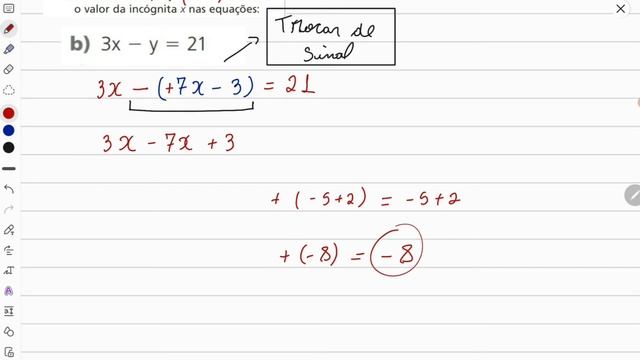 o valor da incógnita x nas equações:
b) 3x − y = 21
Trocar de
Sinal
3x − (+7x − 3) = 21
3x − 7x + 3
+ (−5+2) = −5+2
+ (−8) = −8